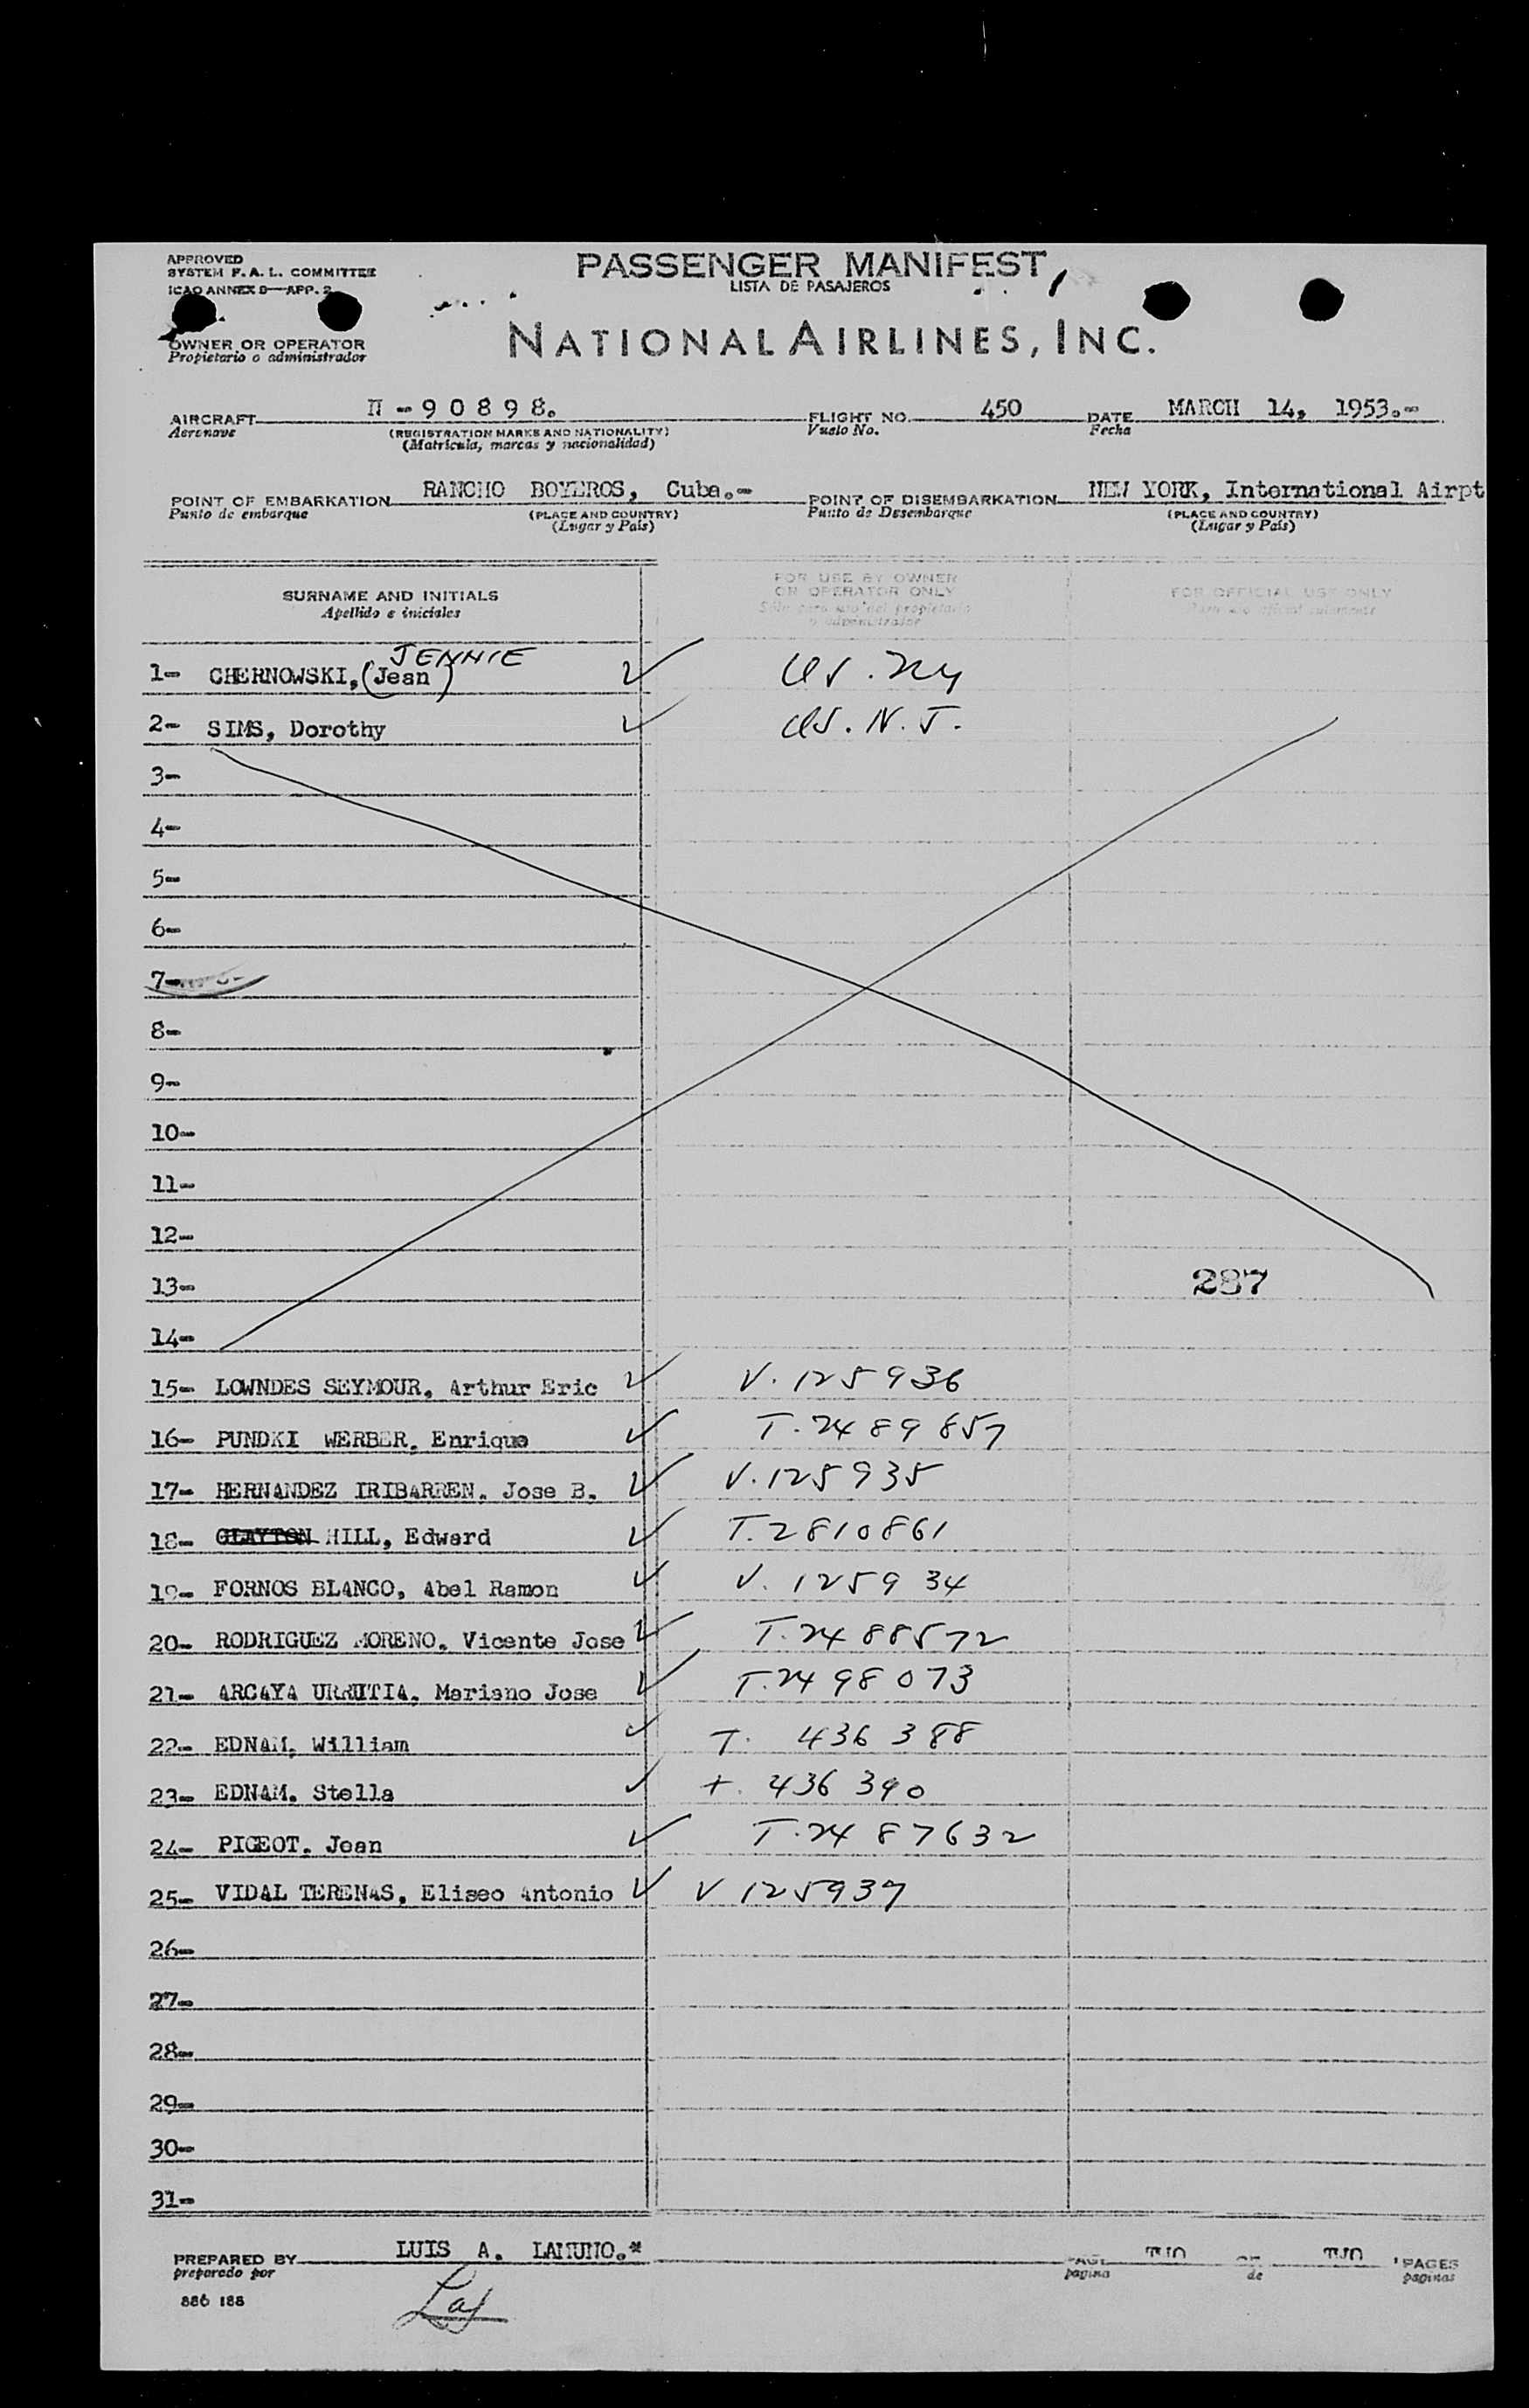 APPROVED
SYSTEM F. A. L. COMMITTEE
ICAO ANNEX 9—APP. 2
PASSENGER MANIFEST
LISTA DE PASAJEROS
OWNER OR OPERATOR
Propietario o administrador
NATIONAL AIRLINES, INC.
AIRCRAFT N-90898. FLIGHT NO. 450 DATE MARCH 14, 1953.-
Aeronave (REGISTRATION MARKS AND NATIONALITY) Vuelo No. Fecha
(Matrícula, marcas y nacionalidad)
POINT OF EMBARKATION RANCHO BOYEROS, Cuba.- POINT OF DISEMBARKATION NEW YORK, International Airpt
Punto de embarque (PLACE AND COUNTRY) Punto de Desembarque (PLACE AND COUNTRY)
(Lugar y País) (Lugar y País)
SURNAME AND INITIALS FOR USE BY OWNER OR OPERATOR ONLY FOR OFFICIAL USE ONLY
Apellido e iniciales Sólo para uso del propietario o administrador
JENNIE
1- CHERNOWSKI, (Jean) ✓ US. NY
2- SIMS, Dorothy ✓ US. N. J.
3-
4-
5-
6-
7-
8-
9-
10-
11-
12-
13- 287
14-
15- LOWNDES SEYMOUR, Arthur Eric ✓ V. 125936
16- PUNDKI WERBER, Enrique ✓ T. 2489857
17- HERNANDEZ IRIBARREN, Jose B. ✓ V. 125935
18- CLAYTON HILL, Edward ✓ T. 2810861
19- FORNOS BLANCO, Abel Ramon ✓ V. 125934
20- RODRIGUEZ MORENO, Vicente Jose ✓ T. 2488572
21- ARCAYA URRUTIA, Mariano Jose ✓ T. 2498073
22- EDNAM, William ✓ T. 436388
23- EDNAM, Stella ✓ T. 436390
24- PIGEOT, Jean ✓ T. 2487632
25- VIDAL TERENAS, Eliseo Antonio ✓ V 125937
26-
27-
28-
29-
30-
31-
PREPARED BY LUIS A. PAGE TWO OF TWO PAGES
preparado por pagina de paginas
886 188